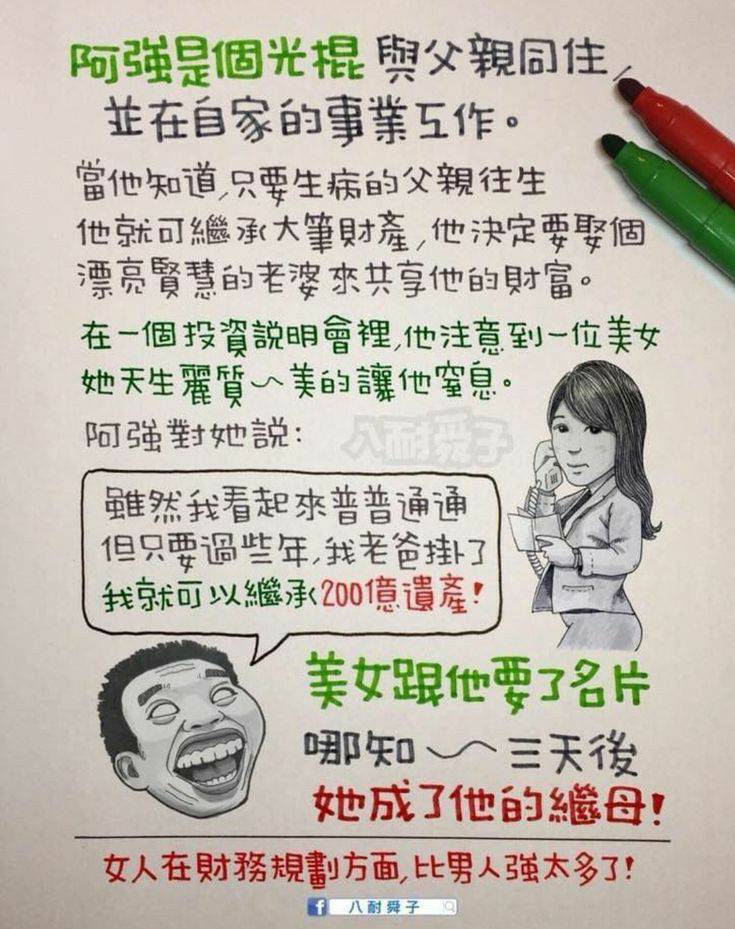 阿強是個光棍 與父親同住,
並在自家的事業工作。
當他知道,只要生病的父親往生
他就可繼承大筆財產,他決定要娶個
漂亮賢慧的老婆來共享他的財富。
在一個投資說明會裡,他注意到一位美女
她天生麗質～美的讓他窒息。
阿強對她說:
八耐舜子
雖然我看起來普普通通
但只要過些年,我老爸掛了
我就可以繼承200億遺產!
美女跟他要了名片
哪知～三天後
她成了他的繼母!
女人在財務規劃方面,比男人強太多了!
f 八耐舜子